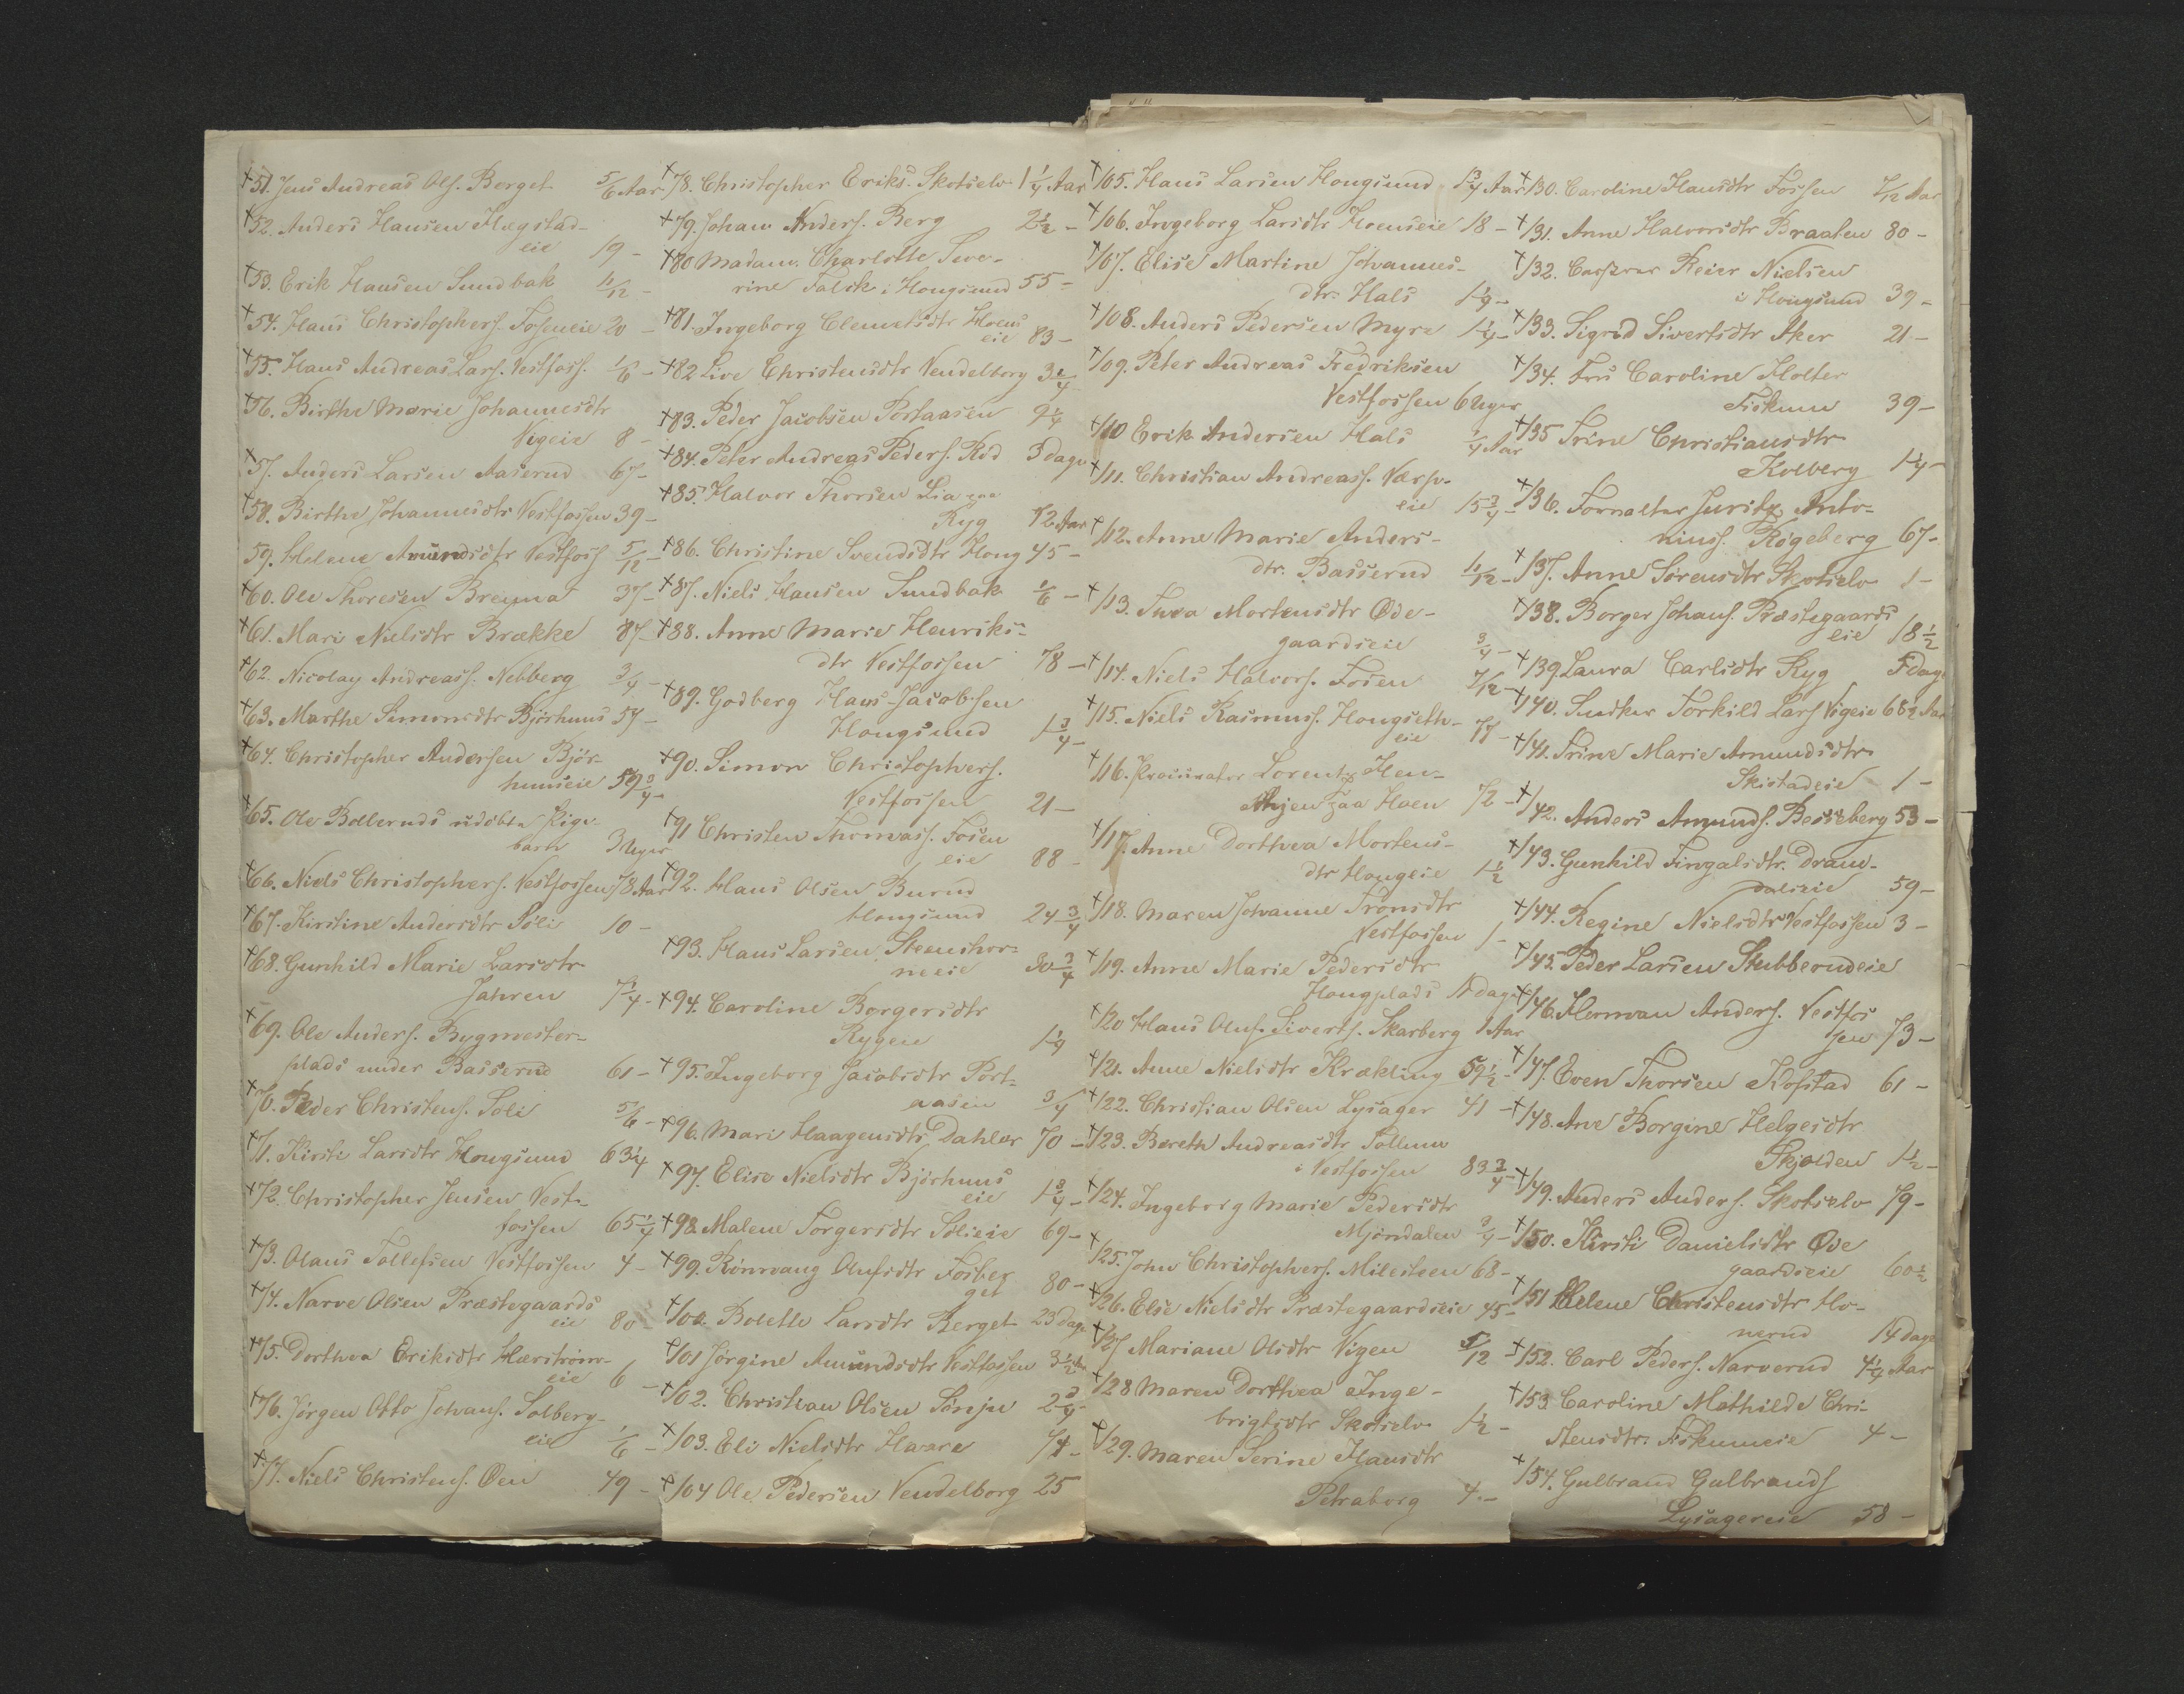 +51. Jens Andreas Ols. Berget 5/6 Aar
+52. Anders Hansen Hægstad-
eie 19 -
+53. Erik Hansen Sundbak 11/12 -
+54. Hans Christophers. Foseneie 20 -
+55. Hans Andreas Lars. Vestfoss. 1/6 -
+56. Birthe Marie Johannesdtr
Vigeie 8 -
+57. Anders Larsen Aaserud 67 -
+58. Birthe Johannesdtr Vestfossen 39 -
59. Helene Amundsdtr Vestfoss 5/12 -
+60. Ole Thoresen Breyna 37 -
+61. Mari Nielsdtr Brække 87 -
+62. Nicolay Andreass. Nebberg 3/4 -
+63. Marthe Simonsdtr Bjørhuus 54 -
+64. Christopher Andersen Bjør-
huuseie 59 3/4 -
+65. Ole Bolleruds udøbte Pige-
barn 3 Uger
+66. Niels Christophers. Vestfossen 78 Aar
+67. Kirstine Andersdtr Søli 10 -
+68. Gunhild Marie Larsdtr
Jahren 7 1/4 -
+69. Ole Anders. Bygmester-
plads under Basserud 61 -
+70. Peder Christens. Soli 5/6 -
+71. Kirsti Larsdtr Hougsund 63 1/4
+72. Christopher Jensen Vest-
fossen 65 1/4
+73. Olaus Tollefsen Vestfossen 4 -
+74. Narve Olsen Præstegaards
eie 80 -
+75. Dorthea Eriksdtr Hærstrøm-
eie 6 -
+76. Jørgen Otto Johans. Solberg-
eie 1/6 -
+77. Niels Christens. Øen 49 -
+78. Christopher Eriks. Skotselv 1 1/4 Aar
+79. Johan Anders. Berg 2 1/2 -
+80 Madam Charlotte Seve-
rine Falck i Hougsund 55 -
+81. Ingeborg Clemetsdtr Hoens
eie 83 -
+82 Live Christensdtr Vendelborg 3 1/4
+83. Peder Jacobsen Portaasen 9 1/4
+84. Peter Andreas Peders. Rød 3 dage
+85. Halvor Thorsen Lia paa
Ryg 72 Aar
+86. Christine Svendsdtr Houg 45 -
+87. Niels Hansen Sundbak 1/6 -
+88. Anne Marie Henriks-
dtr Vestfossen 78 -
+89. Godberg Hans Jacobsen
Hougsund 1 3/4 -
+90. Simon Christophers.
Vestfossen 21 -
+91 Christen Thomass. Fosen
eie 88 -
+92. Hans Olsen Burud
Hougsund 24 3/4
+93. Hans Larsen Steenshor-
neeie 30 3/4
+94. Caroline Borgersdtr
Rygeie 1 1/4
+95. Ingeborg Jacobsdtr Port-
aasen 3/4
+96. Mari Haagensdtr Dahler 70 -
+97. Elise Nielsdtr Bjørhuus
eie 1 3/4 -
+98. Malene Torgersdtr Solieie 69 -
+99. Rønnaug Olufsdtr Fosber
get 80 -
+100. Bolette Larsdtr Berget 23 dage
+101 Jørgine Amundsdtr Vestfossen 3 1/2 Aar
+102. Christian Olsen Sønju 2 3/4
+103. Eli Nielsdtr Haare 74 -
+104 Ole Pedersen Vendelborg 25
+105. Hans Larsen Hougsund 1 3/4 Aar
+106. Ingeborg Larsdtr Hoenseie 18 -
+107. Elise Martine Johannes-
dtr. Hals 1 1/4 -
+108. Anders Pedersen Myra 1 1/4 -
+109. Peter Andreas Fredriksen
Vestfossen 6 Uger
+110 Erik Andersen Hals 1/4 Aar
+111. Christian Andreass. Værp-
eie 15 3/4 -
+112. Anne Marie Anders-
dtr. Basserud 11/12 -
+113. Thea Mortensdtr Øde-
gaardseie 3/4 -
+114. Niels Halvors. Fosen 7/12 -
+115. Niels Rasmuss. Hougseth-
eie 77 -
+116. Procurator Lorentz Hen-
paa Hoen 72 -
+117. Anne Dorthea Mortens-
dtr Hougeie 1 1/2
+118. Maren Johanne Tronsdtr
Vestfossen 1 -
+119. Anne Marie Pedersdtr
Hougplads 1 dage
+120 Hans Oluf Siverts. Skarberg 1 Aar
+121. Anne Nielsdtr Krækling 59 1/2 -
+122. Christian Olsen Lysager 41 -
+123. Bereth Andreasdtr Sollum
i Vestfossen 83 3/4 -
+124. Ingeborg Marie Pedersdtr
Mjøndalen 3/4 -
+125. John Christophers. Milesteen 68 -
+126. Else Nielsdtr Præstegaardseie 45 -
+127 Mariane Olsdtr Vigen 5/12 -
+128 Maren Dorthea Inge-
brigtsdtr Skotselv 1 1/2 -
+129. Maren Serine Hansdtr
Petraborg 4 -
+130. Caroline Hansdtr Fossen 7/12 Aar
+131. Anne Halvorsdtr Braaten 80 -
+132. Reier Nielsen
i Hougsund 39 -
+133. Sigrid Sivertsdtr Aker 21 -
+134. Fru Caroline Holter
Fiskum 39 -
+135 Trine Christiansdtr
Kolberg 1 1/4 -
+136. Forvalter Juritz Anto-
niuss. Røgeberg 67 -
+137. Anne Sørensdtr Skotselv 1 -
+138. Borger Johans. Præstegaards
eie 18 1/2
+139. Laura Carlsdtr Ryg 5 dage
+140. Snedker Torkild Lars Vigeie 68 1/2 Aar
+141. Trine Marie Amundsdtr
Skistadeie 1 -
+142. Anders Amunds. Besseberg 53 -
+143. Gunhild Fingalsdtr. Dram-
dalseie 59 -
+144. Regine Nielsdtr Vestfossen 3 -
+145. Peder Larsen Stubberudeie
+146. Herman Anders. Vestfos
sen 73 -
+147. Even Thorsen Kofstad 61 -
+148. Ane Borgine Helgesdtr
Skjolden 1 1/2 -
+149. Anders Anders. Skotselv 79 -
+150. Kirsti Danielsdtr Øde
gaardseie 60 1/2
+151 Helene Christensdtr Ho-
nerud 14 dage
+152. Carl Peders. Narverud 4 1/4 Aar
+153 Caroline Mathilde Chri-
stensdtr. Fiskumeie 4 -
+154. Gulbrand Gulbrands
Lysagereie 58 -